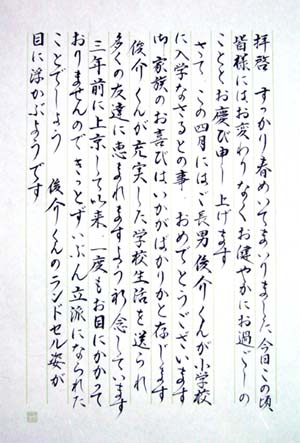 拝啓 すっかり春めいてまいりました今日この頃、
皆様にはお変わりなくお健やかにお過ごしの
こととお慶び申し上げます
さて この四月には、ご長男俊介くんが小学校
に入学なさるとの事、おめでとうございます
御家族のお喜びは、いかがばかりかと存じます
俊介くんが充実した学校生活を送られ
多くの友達に恵まれますよう祈念しています
三年前に上京して以来、一度もお目にかかって
おりませんのできっとずいぶん立派になられた
ことでしょう 俊介くんのランドセル姿が
目に浮かぶようです